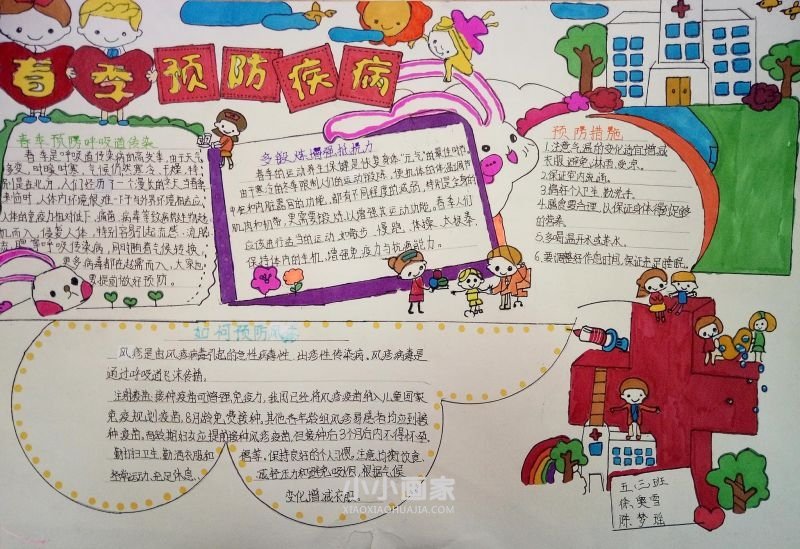 春季预防疾病
春季预防呼吸道传染
春季是呼吸道传染病的高发季,由于天气
多变,时暖时寒,气候仍然寒冷、干燥,特
别是在北方,人们经历了一个漫长的冬天,当春季
来临时,人体内环境很难一下子与外界环境相适应,
人体的免疫力相对低下,细菌、病毒等致病微生物趁
机而入,侵袭人体,特别容易引起流感、流脑
更多病毒都在趁虚而入,大家
要提前做好预防。
多锻炼增强抵抗力
春季的运动养生保健是恢复身体"元气"的最佳时机。
由于寒冷的冬季限制了人们的运动锻炼,使机体的体温调节
中枢和内脏器官的功能,都有不同程度的减弱,特别是全身的
肌肉和韧带,更需要锻炼以增强其运动功能。春季人们
应该进行适当的运动,如散步、慢跑、体操、太极拳
保持体内的生机,增强免疫力与抗病能力。
预防措施
1.注意气温的变化适宜增减
衣服,避免淋雨、受凉。
2.保证室内通通。
3.搞好个卫生,勤洗手。
4.膳食要合理,以保证身体得到足够
的营养。
5.多喝温开水或茶水。
6.要调整好作息时间,保证充足睡眠。
如何预防风疹
风疹是由风疹病毒引起的急性病毒性、出疹性传染病。风疹病毒是
通过呼吸道飞沫传播。
注射疫苗:接种疫苗可增强免疫力,我国已经将风疹疫苗纳入儿童国家
免疫规划疫苗,8月龄免费接种,其他各年龄组风疹易感者均应到接
种疫苗,育龄期妇女应提前接种风疹疫苗,但接种后3个月内不得怀孕。
勤打卫生、勤洒衣服和
被褥、保持良好的个人习惯,注意均衡饮食、
经常运动、充足休息、
减轻压力和避免吸烟,根据气候
变化增减衣服。
五、三班
徐奥雪
陈梦瑶
小小画家
XIAOXIAOHUAJIA.COM